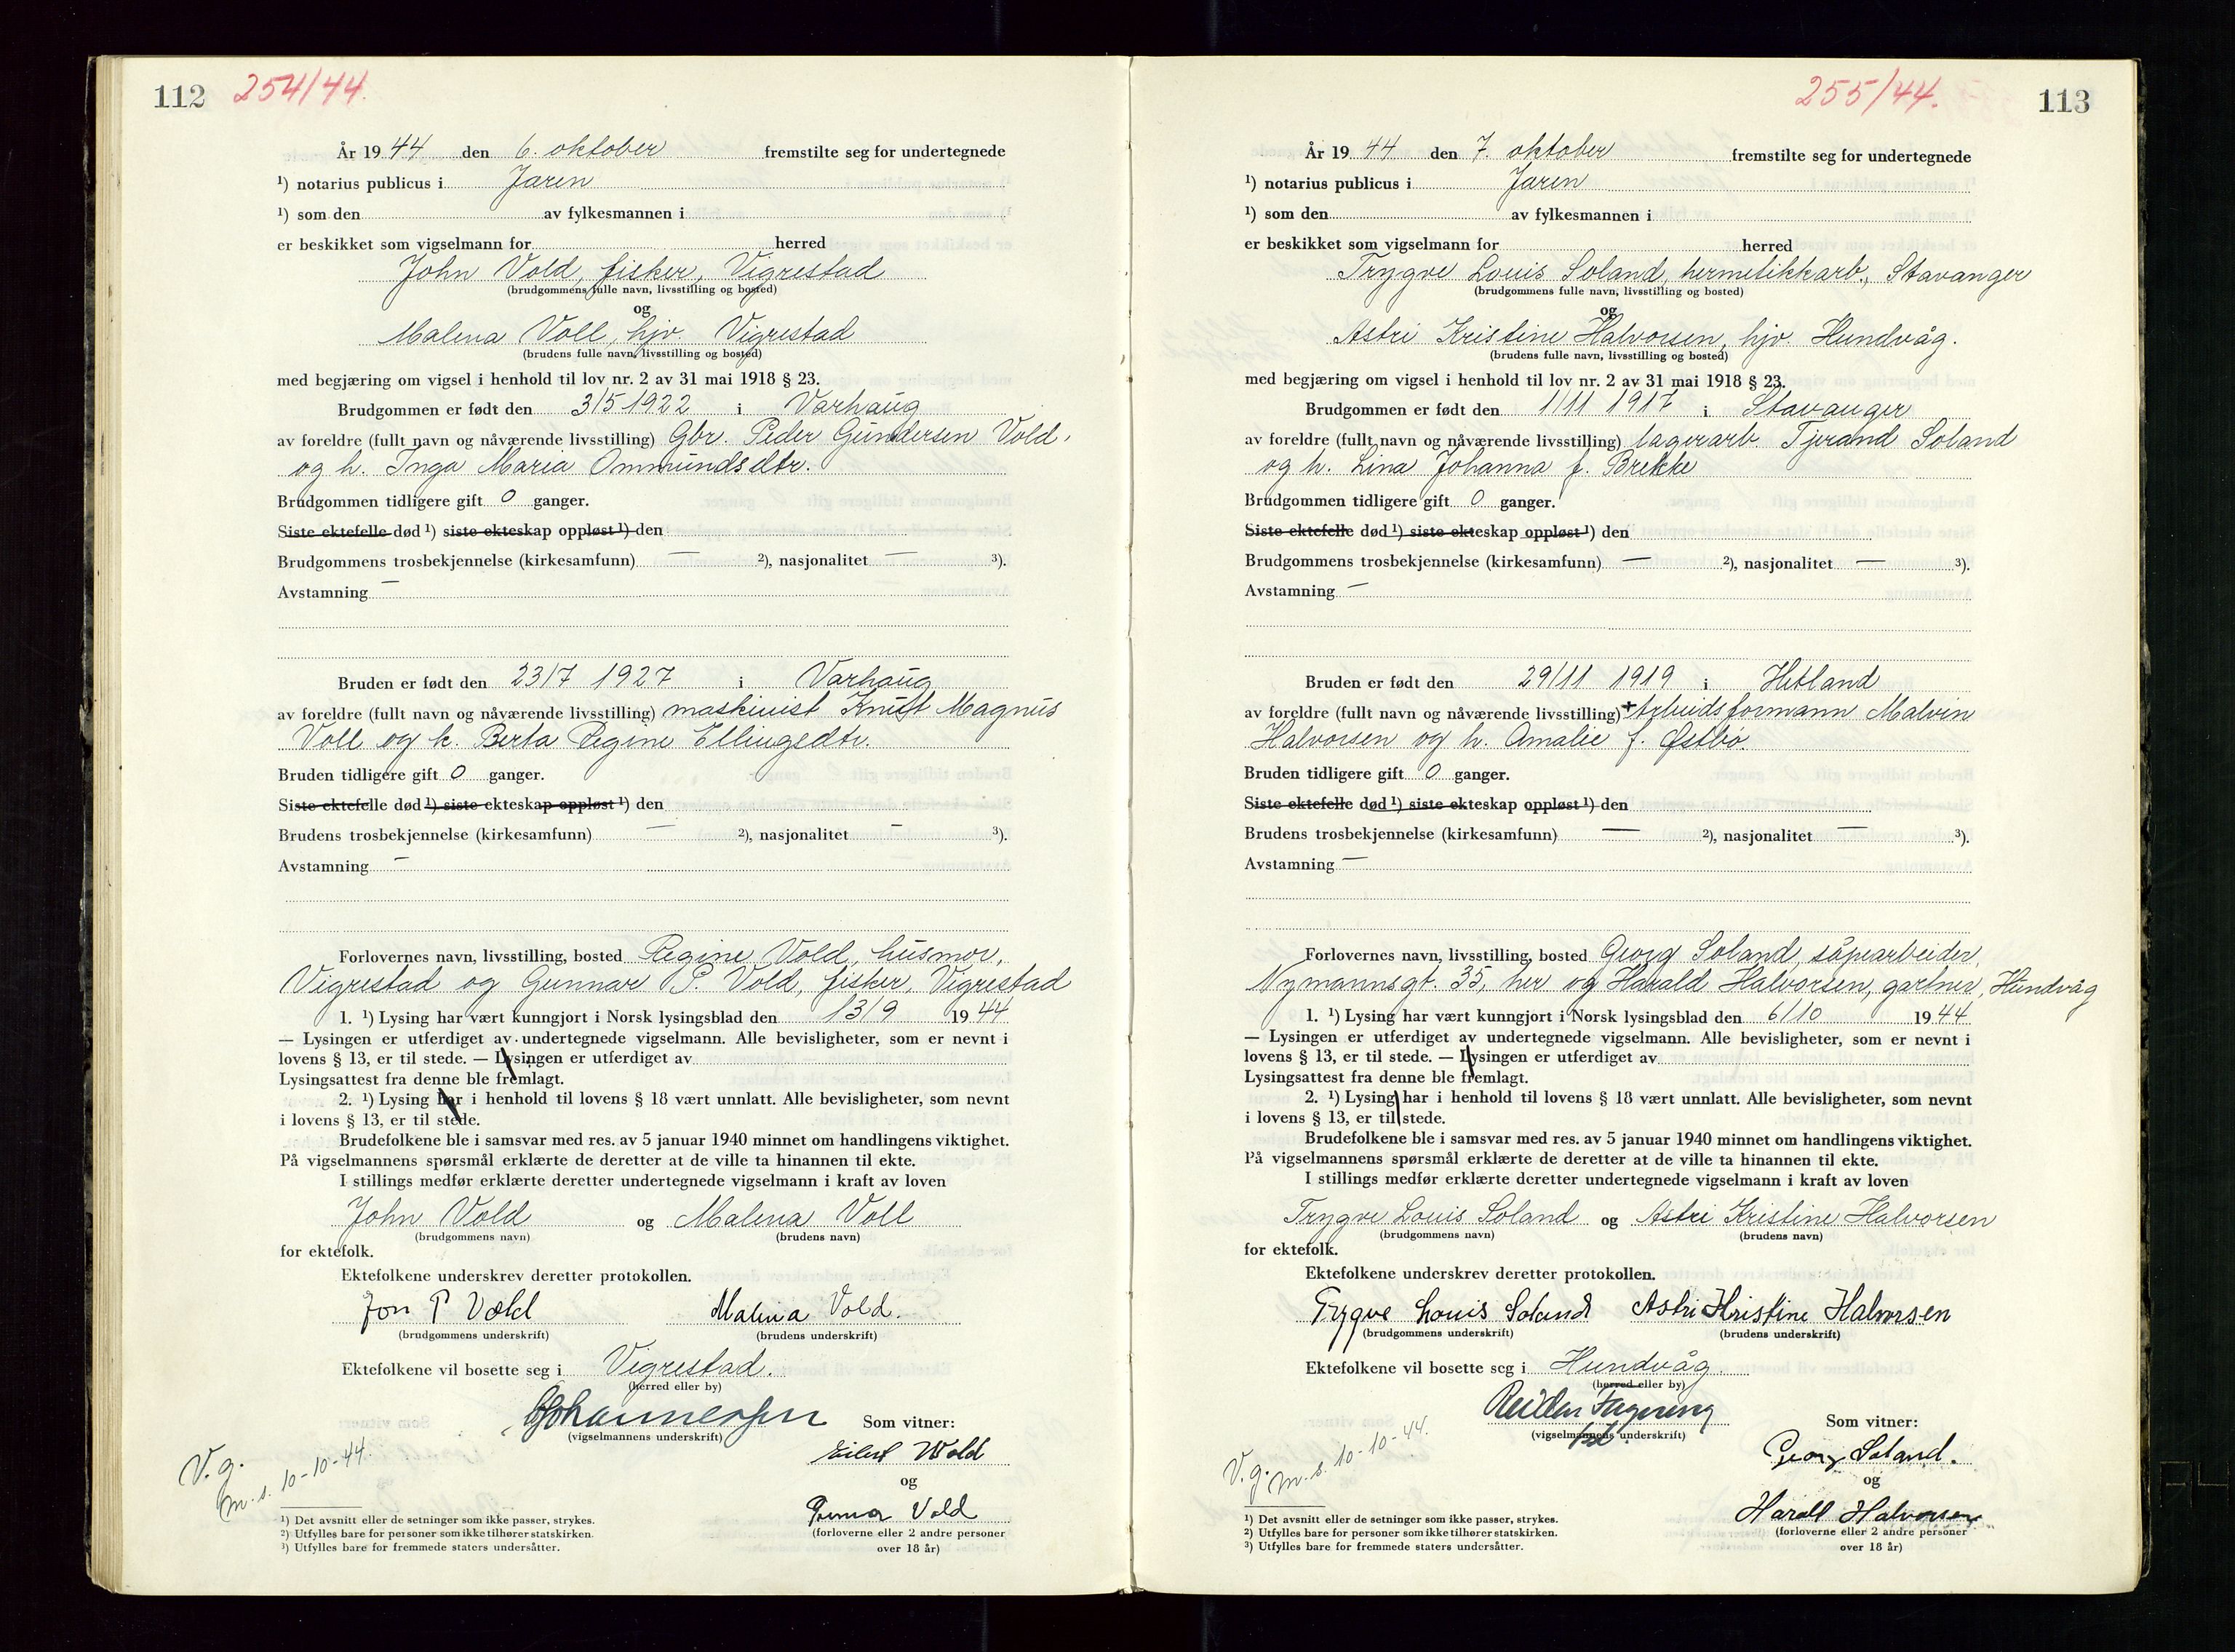 112 254/44.
År 19 44 den 6. oktober fremstilte seg for undertegnede
¹) notarius publicus i Jæren
¹) som den av fylkesmannen i
er beskikket som vigselmann for herred
John Vold, fisker, Vigrestad
(brudgommens fulle navn, livsstilling og bosted)
og
Malena Voll, hjv. Vigrestad
(brudens fulle navn, livsstilling og bosted)
med begjæring om vigsel i henhold til lov nr. 2 av 31 mai 1918 § 23.
Brudgommen er født den 3/5 1922 i Varhaug
av foreldre (fullt navn og nåværende livsstilling) Gbr. Peder Gundersen Vold,
og h. Inga Maria Ommundsdtr.
Brudgommen tidligere gift 0 ganger.
Siste ektefelle død ¹) siste ekteskap oppløst ¹) den
Brudgommens trosbekjennelse (kirkesamfunn) — ²), nasjonalitet — ³).
Avstamning —
Bruden er født den 23/7 1927 i Varhaug
av foreldre (fullt navn og nåværende livsstilling) maskinist Knut Magnus
Voll og h. Berta Regine Ellingsdtr.
Bruden tidligere gift 0 ganger.
Siste ektefelle død ¹) siste ekteskap oppløst ¹) den
Brudens trosbekjennelse (kirkesamfunn) — ²), nasjonalitet — ³).
Avstamning —
Forlovernes navn, livsstilling, bosted Regine Vold, husmor,
Vigrestad og Gunnar P. Vold, fisker, Vigrestad
1. ¹) Lysing har vært kunngjort i Norsk lysingsblad den 13/9 19 44
— Lysingen er utferdiget av undertegnede vigselmann. Alle bevisligheter, som er nevnt i
lovens § 13, er til stede. — Lysingen er utferdiget av
Lysingsattest fra denne ble fremlagt.
2. ¹) Lysing har i henhold til lovens § 18 vært unnlatt. Alle bevisligheter, som nevnt
i lovens § 13, er til stede.
Brudefolkene ble i samsvar med res. av 5 januar 1940 minnet om handlingens viktighet.
På vigselmannens spørsmål erklærte de deretter at de ville ta hinannen til ekte.
I stillings medfør erklærte deretter undertegnede vigselmann i kraft av loven
John Vold og Malena Voll
(brudgommens navn) (brudens navn)
for ektefolk.
Ektefolkene underskrev deretter protokollen.
Jon P Vold Malena Vold.
(brudgommens underskrift) (brudens underskrift)
Ektefolkene vil bosette seg i Vigrestad.
(herred eller by)
Som vitner:
(vigselmannens underskrift)
Eilert Wold
V.g.
m.s. 10-10-44.
og
Gunnar Vold
(forloverne eller 2 andre personer
over 18 år)
¹) Det avsnitt eller de setninger som ikke passer, strykes.
²) Utfylles bare for personer som ikke tilhører statskirken.
³) Utfylles bare for fremmede staters undersåtter.
255/44. 113
År 19 44 den 7. oktober fremstilte seg for undertegnede
¹) notarius publicus i Jæren
¹) som den av fylkesmannen i
er beskikket som vigselmann for herred
Trygve Louis Soland, hermetikkarb., Stavanger
(brudgommens fulle navn, livsstilling og bosted)
og
Astri Kristine Halvorsen, hjv. Hundvåg.
(brudens fulle navn, livsstilling og bosted)
med begjæring om vigsel i henhold til lov nr. 2 av 31 mai 1918 § 23.
Brudgommen er født den 1/11 1917 i Stavanger
av foreldre (fullt navn og nåværende livsstilling) lagerarb. Tjerand Soland
og h. Lina Johanna f. Brekke
Brudgommen tidligere gift 0 ganger.
Siste ektefelle død ¹) siste ekteskap oppløst ¹) den
Brudgommens trosbekjennelse (kirkesamfunn) — ²), nasjonalitet — ³).
Avstamning —
Bruden er født den 29/11 1919 i Hetland
av foreldre (fullt navn og nåværende livsstilling) + Arbeidsformann Malvin
Halvorsen og h. Amalie f. Østbø.
Bruden tidligere gift 0 ganger.
Siste ektefelle død ¹) siste ekteskap oppløst ¹) den
Brudens trosbekjennelse (kirkesamfunn) — ²), nasjonalitet — ³).
Avstamning —
Forlovernes navn, livsstilling, bosted Georg Soland, såpearbeider,
Nymannsgt. 35, her og Harald Halvorsen, gartner, Hundvåg
1. ¹) Lysing har vært kunngjort i Norsk lysingsblad den 6/10 19 44
— Lysingen er utferdiget av undertegnede vigselmann. Alle bevisligheter, som er nevnt i
lovens § 13, er til stede. — Lysingen er utferdiget av
Lysingsattest fra denne ble fremlagt.
2. ¹) Lysing har i henhold til lovens § 18 vært unnlatt. Alle bevisligheter, som nevnt
i lovens § 13, er til stede.
Brudefolkene ble i samsvar med res. av 5 januar 1940 minnet om handlingens viktighet.
På vigselmannens spørsmål erklærte de deretter at de ville ta hinannen til ekte.
I stillings medfør erklærte deretter undertegnede vigselmann i kraft av loven
Trygve Louis Soland og Astri Kristine Halvorsen
(brudgommens navn) (brudens navn)
for ektefolk.
Ektefolkene underskrev deretter protokollen.
Trygve Louis Soland Astri Kristine Halvorsen
(brudgommens underskrift) (brudens underskrift)
Ektefolkene vil bosette seg i Hundvåg.
(herred eller by)
Som vitner:
(vigselmannens underskrift)
Georg Soland.
V.g. m.s. 10-10-44.
og
Harall Halvorsen
(forloverne eller 2 andre personer
over 18 år)
¹) Det avsnitt eller de setninger som ikke passer, strykes.
²) Utfylles bare for personer som ikke tilhører statskirken.
³) Utfylles bare for fremmede staters undersåtter.